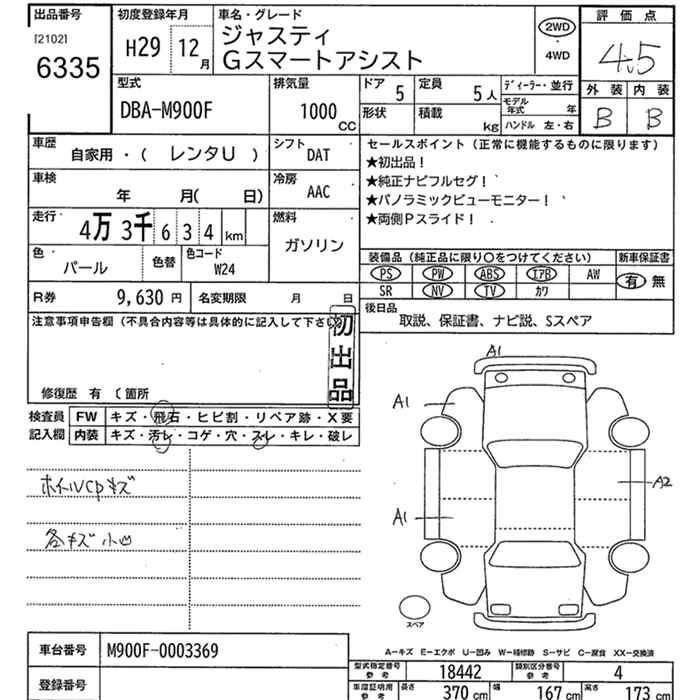 出品番号
[2102]
6335
初度登録年月
H29 12月
車名・グレード
ジャスティ
Gスマートアシスト
2WD
・
4WD
評価点
4.5
外装 内装
B B
型式
DBA-M900F
排気量
1000
CC
ドア 5
定員 5人
形状
積載 kg
ディーラー・並行
モデル年式 年
ハンドル 左・右
車歴
自家用・( レンタU )
シフト
DAT
車検
年 月( 日)
冷房
AAC
走行
4万3千634km
燃料
ガソリン
色
パール
色替
色コード
W24
セールスポイント(正常に機能するものに限ります)
★初出品!
★純正ナビフルセグ!
★パノラミックビューモニター!
★両側Pスライド!
装備品(純正品に限り○をつけてください)
新車保証書
PS PW ABS エアB AW
SR NV TV カワ
有 無
R券 9,630円
名変期限 月 日
後日品
取説、保証書、ナビ説、Sスペア
注意事項申告欄(不具合内容等は具体的に記入して下さい
初出品
修復歴 有 〔箇所
検査員
記入欄
FW キズ・飛石・ヒビ割・リペア跡・X要
内装 キズ・汚レ・コゲ・穴・スレ・キレ・破レ
ホイルCPキズ
各キズ小凹
A1
A1
A2
A1
スペア
A−キズ E−エクボ U−凹み W−補修跡 S−サビ C−腐食 XX−交換済
車台番号
M900F-0003369
登録番号
型式指定番号
参考
18442
類別区分番号
参考
4
車庫証明用
参考
長さ 370 cm
幅 167 cm
高さ 173 cm